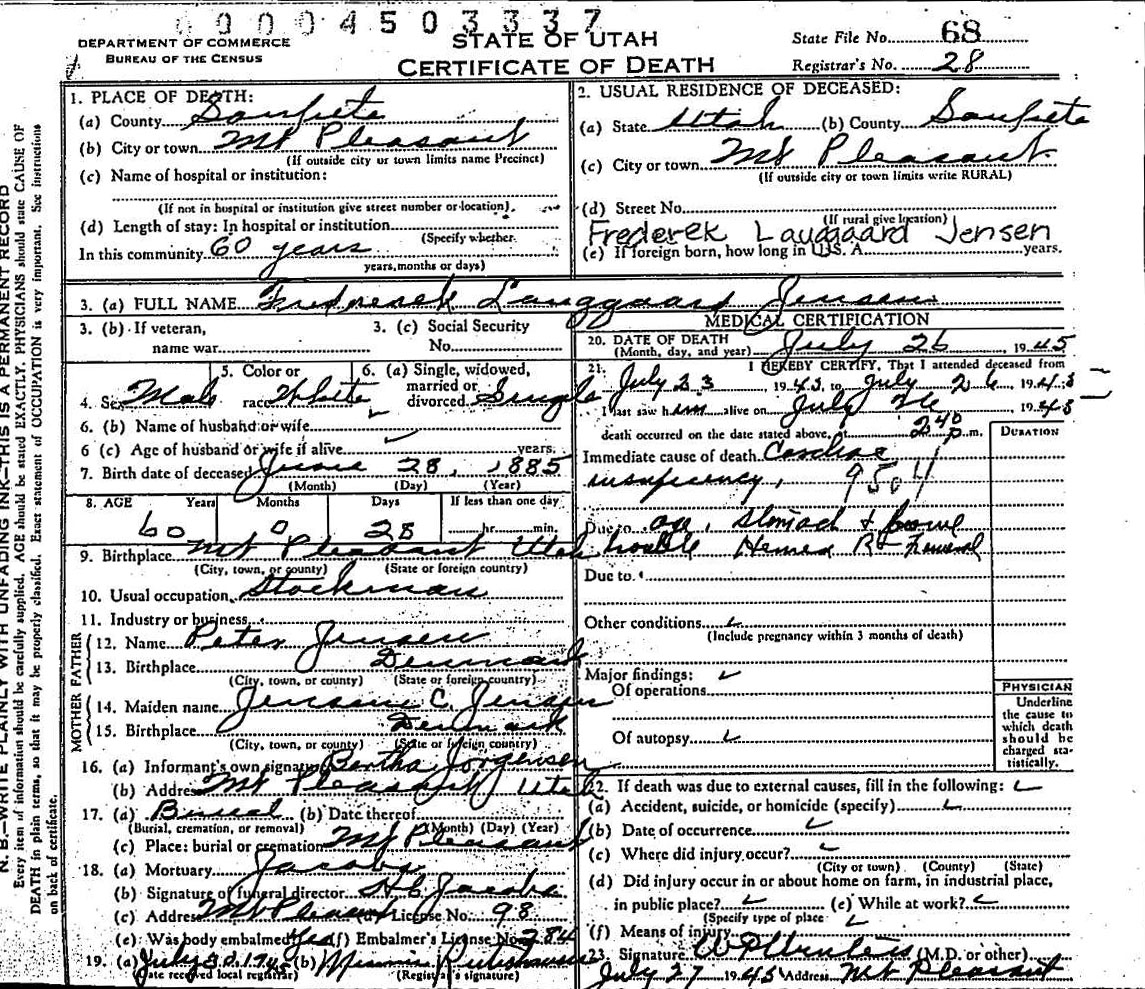 0004503337
DEPARTMENT OF COMMERCE
BUREAU OF THE CENSUS
STATE OF UTAH
CERTIFICATE OF DEATH
State File No. 68
Registrar's No. 28
N. B.—WRITE PLAINLY WITH UNFADING INK—THIS IS A PERMANENT RECORD
Every item of information should be carefully supplied. AGE should be stated EXACTLY. PHYSICIANS should state CAUSE OF
DEATH in plain terms, so that it may be properly classified. Exact statement of OCCUPATION is very important. See instructions
on back of certificate.
1. PLACE OF DEATH:
(a) County Sanpete
(b) City or town Mt Pleasant
(If outside city or town limits name Precinct)
(c) Name of hospital or institution:
(If not in hospital or institution give street number or location)
(d) Length of stay: In hospital or institution
(Specify whether
In this community 60 years
years, months or days)
2. USUAL RESIDENCE OF DECEASED:
(a) State Utah (b) County Sanpete
(c) City or town Mt Pleasant
(If outside city or town limits write RURAL)
(d) Street No.
(If rural give location)
Frederek Lauggaard Jensen
(e) If foreign born, how long in U.S. A. years.
3. (a) FULL NAME Frederick Langgaard Jensen
3. (b) If veteran,
name war
3. (c) Social Security
No.
4. Sex Male
5. Color or
race White
6. (a) Single, widowed,
married or
divorced Single
6. (b) Name of husband or wife
6 (c) Age of husband or wife if alive years.
7. Birth date of deceased June 28, 1885
(Month) (Day) (Year)
8. AGE Years Months Days If less than one day
60 0 28 hr. min.
9. Birthplace Mt Pleasant Utah
(City, town, or county) (State or foreign country)
10. Usual occupation Stockman
11. Industry or business
FATHER
12. Name Peter Jensen
13. Birthplace Denmark
(City, town, or county) (State or foreign country)
MOTHER
14. Maiden name C. Jensen
15. Birthplace Denmark
(City, town, or county) (State or foreign country)
16. (a) Informant's own signature Bertha Jorgensen
(b) Address Mt Pleasant Utah
17. (a) Burial (b) Date thereof
(Burial, cremation, or removal) (Month) (Day) (Year)
(c) Place: burial or cremation Mt Pleasant
18. (a) Mortuary Jacobs
(b) Signature of funeral director H C Jacobs
(c) Address Mt Pleasant (d) License No. 98
(e) Was body embalmed Yes (f) Embalmer's License No. 284
19. (a) July 30. 1945 (b) Minnie
Date received local registrar) (Registrar's signature)
MEDICAL CERTIFICATION
20. DATE OF DEATH
(Month, day, and year) July 26 , 1945
21. I HEREBY CERTIFY, That I attended deceased from
July 23 1945 to July 26, 1945
I last saw him alive on July 26 , 1945
death occurred on the date stated above, at 2 40 p.m.
DURATION
Immediate cause of death Cardiac
insuficiency,
Due to age, Stomach + bowel
trouble
Due to
Other conditions
(Include pregnancy within 3 months of death)
Major findings:
Of operations
Of autopsy
PHYSICIAN
Underline
the cause to
which death
should be
charged sta-
tistically.
22. If death was due to external causes, fill in the following:
(a) Accident, suicide, or homicide (specify)
(b) Date of occurrence
(c) Where did injury occur?
(City or town) (County) (State)
(d) Did injury occur in or about home on farm, in industrial place,
in public place? (e) While at work?
(Specify type of place
(f) Means of injury
23. Signature (M.D. or other)
July 27 1945 Address Mt Pleasant